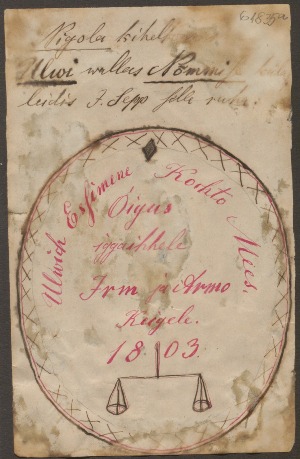 Wigola kihelk
Ulwi wallas Nömmi
leidis J. Sepp selle raha.
Ulwich Essimene Kochto Mees.
Öigus
iggaühhele
Irm ja Armo
Keigele.
18.03.